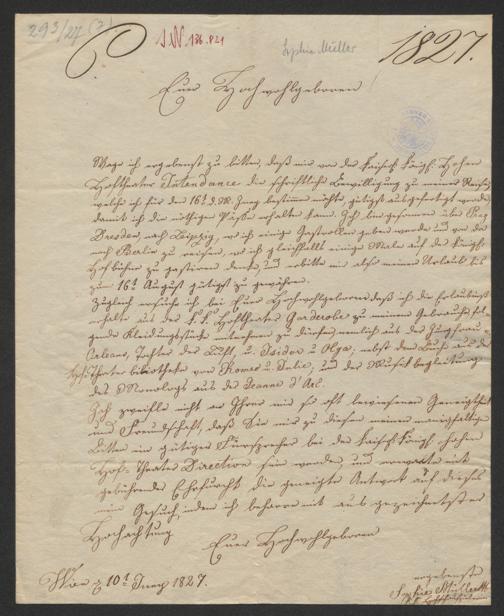 293/27 (2)
I.N. 136.821
Sophie Müller
1827.
Euer Hochwohlgeboren
Wage ich ergebenst zu bitten, daß mir von der kaiserl. königl. Hohen
Hoftheater Intendance die schriftliche Bewilligung zu meiner Reise,
welche ich für den 16t d. M. Juny bestimmen möchte, gütigst ausgefertigt werde,
damit ich die nöthigen Pässe erhalten kann. Ich bin gesonnen über Prag
Dresden, nach Leipzig, wo ich einige Gastrollen geben werde und von da
nach Berlin zu reisen, wo ich gleichfalls einige Male auf der königl.
Hofbühne zu gastiren denke, und erbitte mir also meinen Urlaub bis
zum 16t August gütigst zu gewähren.
Zugleich ersuche ich bei Euer Hochwohlgeboren daß ich die Erlaubniß
erhalte aus der k. k. Hoftheater Garderobe zu meinem Gebrauche fol-
gende Kleidungsstücke mitnehmen zu dürfen, nemlich aus der Jungfrau v.
Orleans, Tochter der Luft, u. Isidor u Olga; nebst dem Buche aus der
Hof-Theater bibliothek von Romeo u. Julie; und der Musik begleitung
des Monologs aus der Jeanne d'Arc.
Ich zweifle nicht an Ihrer mir so oft bewiesenen Geneigtheit
und Freundschaft, daß Sie mir zu diesen meinen mannigfaltigen
Bitten ein gütiger Fürsprecher bei der kaiserl. königl. hohen
Hof-Theater Direction sein werden, und erwarte mit
gebührender Ehrfurcht die geneigte Antwort auf dieses
mein Gesuch, indem ich beharre mit ausgezeichnetster
Hochachtung
Euer Hochwohlgeboren
Wien d 10t Juny 1827.
ergebenste
Sophie Müller